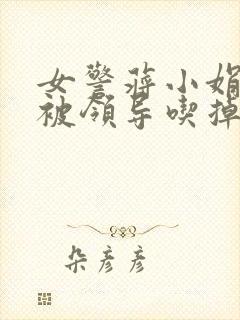 女警蒋小娟
被领导喫掉
朵彦彦